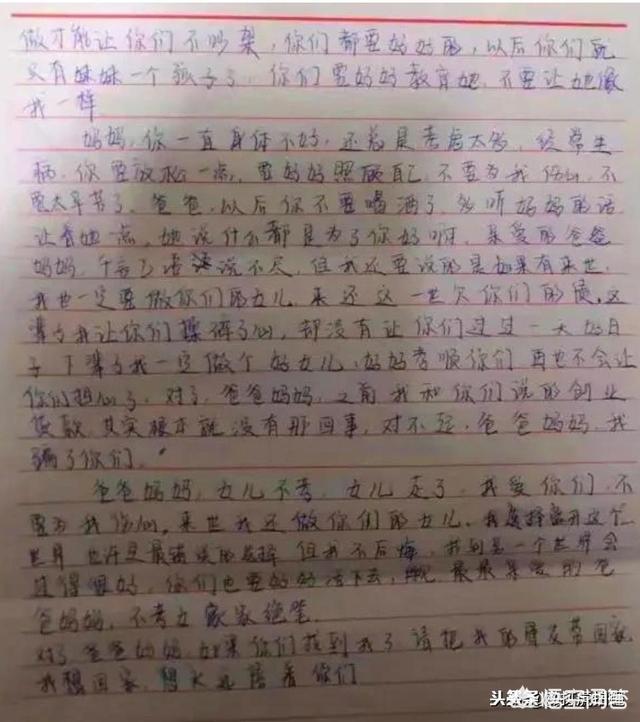 做才能让你们不吵架，你们都要好好的，以后你们就
只有妹妹一个孩子了，你们要好好教育她，不要让她像
我一样
妈妈，你一直身体不好，还总是考虑太多，经常生
病，你要放松一点，要好好照顾自己，不要为我伤心，不
要太辛苦了，爸爸，以后你不要喝酒了，多听妈妈的话
让着她一点，她说什么都是为了你好呀，亲爱的爸爸
妈妈，千言万语说不尽，但我还要说的是如果有来世，
我也一定要做你们的女儿，来还这一世欠你们的债，这
辈子我让你们操碎了心，却没有让你们过过一天好日
子下辈子我一定做个好女儿，好好孝顺你们再也不会让
你们担心了，对了，爸爸妈妈，之前我和你们说的创业
贷款，其实根本就没有那回事，对不起，爸爸妈妈，我
骗了你们。
爸爸妈妈，女儿不孝，女儿走了，我爱你们，不
要为我伤心，来世我还做你们的女儿，我选择离开这个
世界 也许是最错误的选择 但我不后悔，我到另一个世界会
过得很好，你们也要好好活下去，最最亲爱的爸
爸妈妈，不孝女 家家绝笔
对了 爸爸妈妈，如果你们找到我了，请把我的骨灰带回家
我想回家，想永远陪着你们
头条
悟空问答